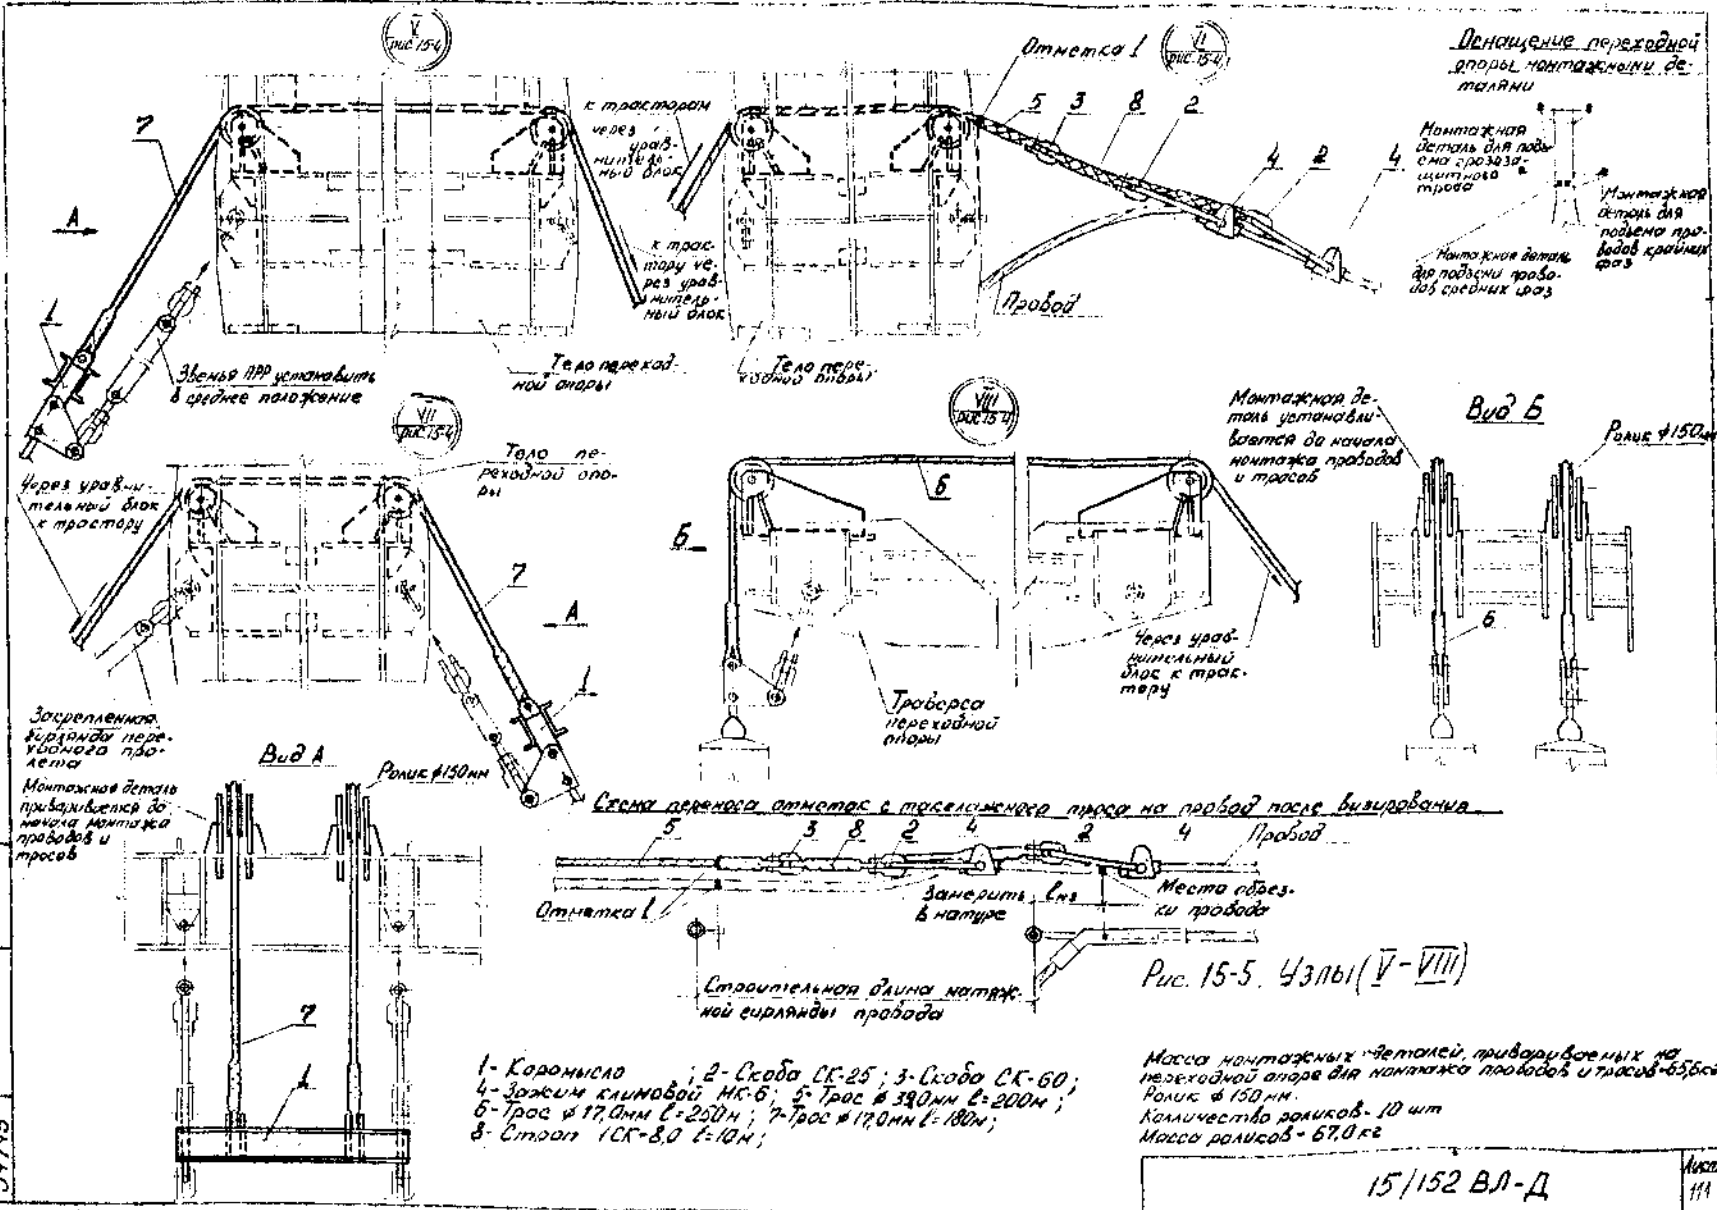 V
рис 15-4
VI
рис. 15-4
Отметка 1
Оснащение переходной
опоры монтажными де-
талями
7
к тракторам
через
урав-
нитель-
ный блок
5 3 8 2
4 2 4
Монтажная
деталь для подъ-
ема грозоза-
щитного
троса
Монтажная
деталь для
подъема про-
водов крайних
фаз
Монтажная деталь
для подъема прово-
дов средних фаз
А
к трак-
тору че-
рез урав-
нитель-
ный блок
Провод
1
Звенья ПРР установить
в среднее положение
Тело переход-
ной опоры
Тело пере-
ходной опоры
VII
рис 15-4
VIII
рис 15-4
Через уравни-
тельный блок
к трактору
Тело пе-
реходной опо-
ры
7
А
1
6
Б
Монтажная де-
таль устанавли-
вается до начала
монтажа проводов
и тросов
Вид Б
Ролик ϕ150мм
6
Через урав-
нительный
блок к трак-
тору
Траверса
переходной
опоры
Закрепленная
гирлянда пере-
ходного про-
лета
Вид А
Монтажная деталь
приваривается до
начала монтажа
проводов и
тросов
Ролик ϕ150мм
7
1
Схема переноса отметок с такелажного троса на провод после визирования
5 3 8 2 4 2 4 Провод
Отметка 1
Замерить
в натуре
Место обрез-
ки провода
Строительная длина натяж-
ной гирлянды провода
Рис. 15-5. Узлы (V-VIII)
1- Коромысло ; 2- Скоба СК-25 ; 3- Скоба СК-60 ;
4- Зажим клиновой НК-6; 5- Трос ϕ 39,0мм ℓ=200м ;
6- Трос ϕ 17,0мм ℓ=250м ; 7- Трос ϕ 17,0мм ℓ=180м ;
8- Строп 1СК-8,0 ℓ=10м ;
Масса монтажных деталей, привариваемых на
переходной опоре для монтажа проводов и тросов-65,6кг
Ролик ϕ 150мм.
Количество роликов- 10 шт
Масса роликов - 67,0 кг
15/152 ВЛ-Д
Лист
111